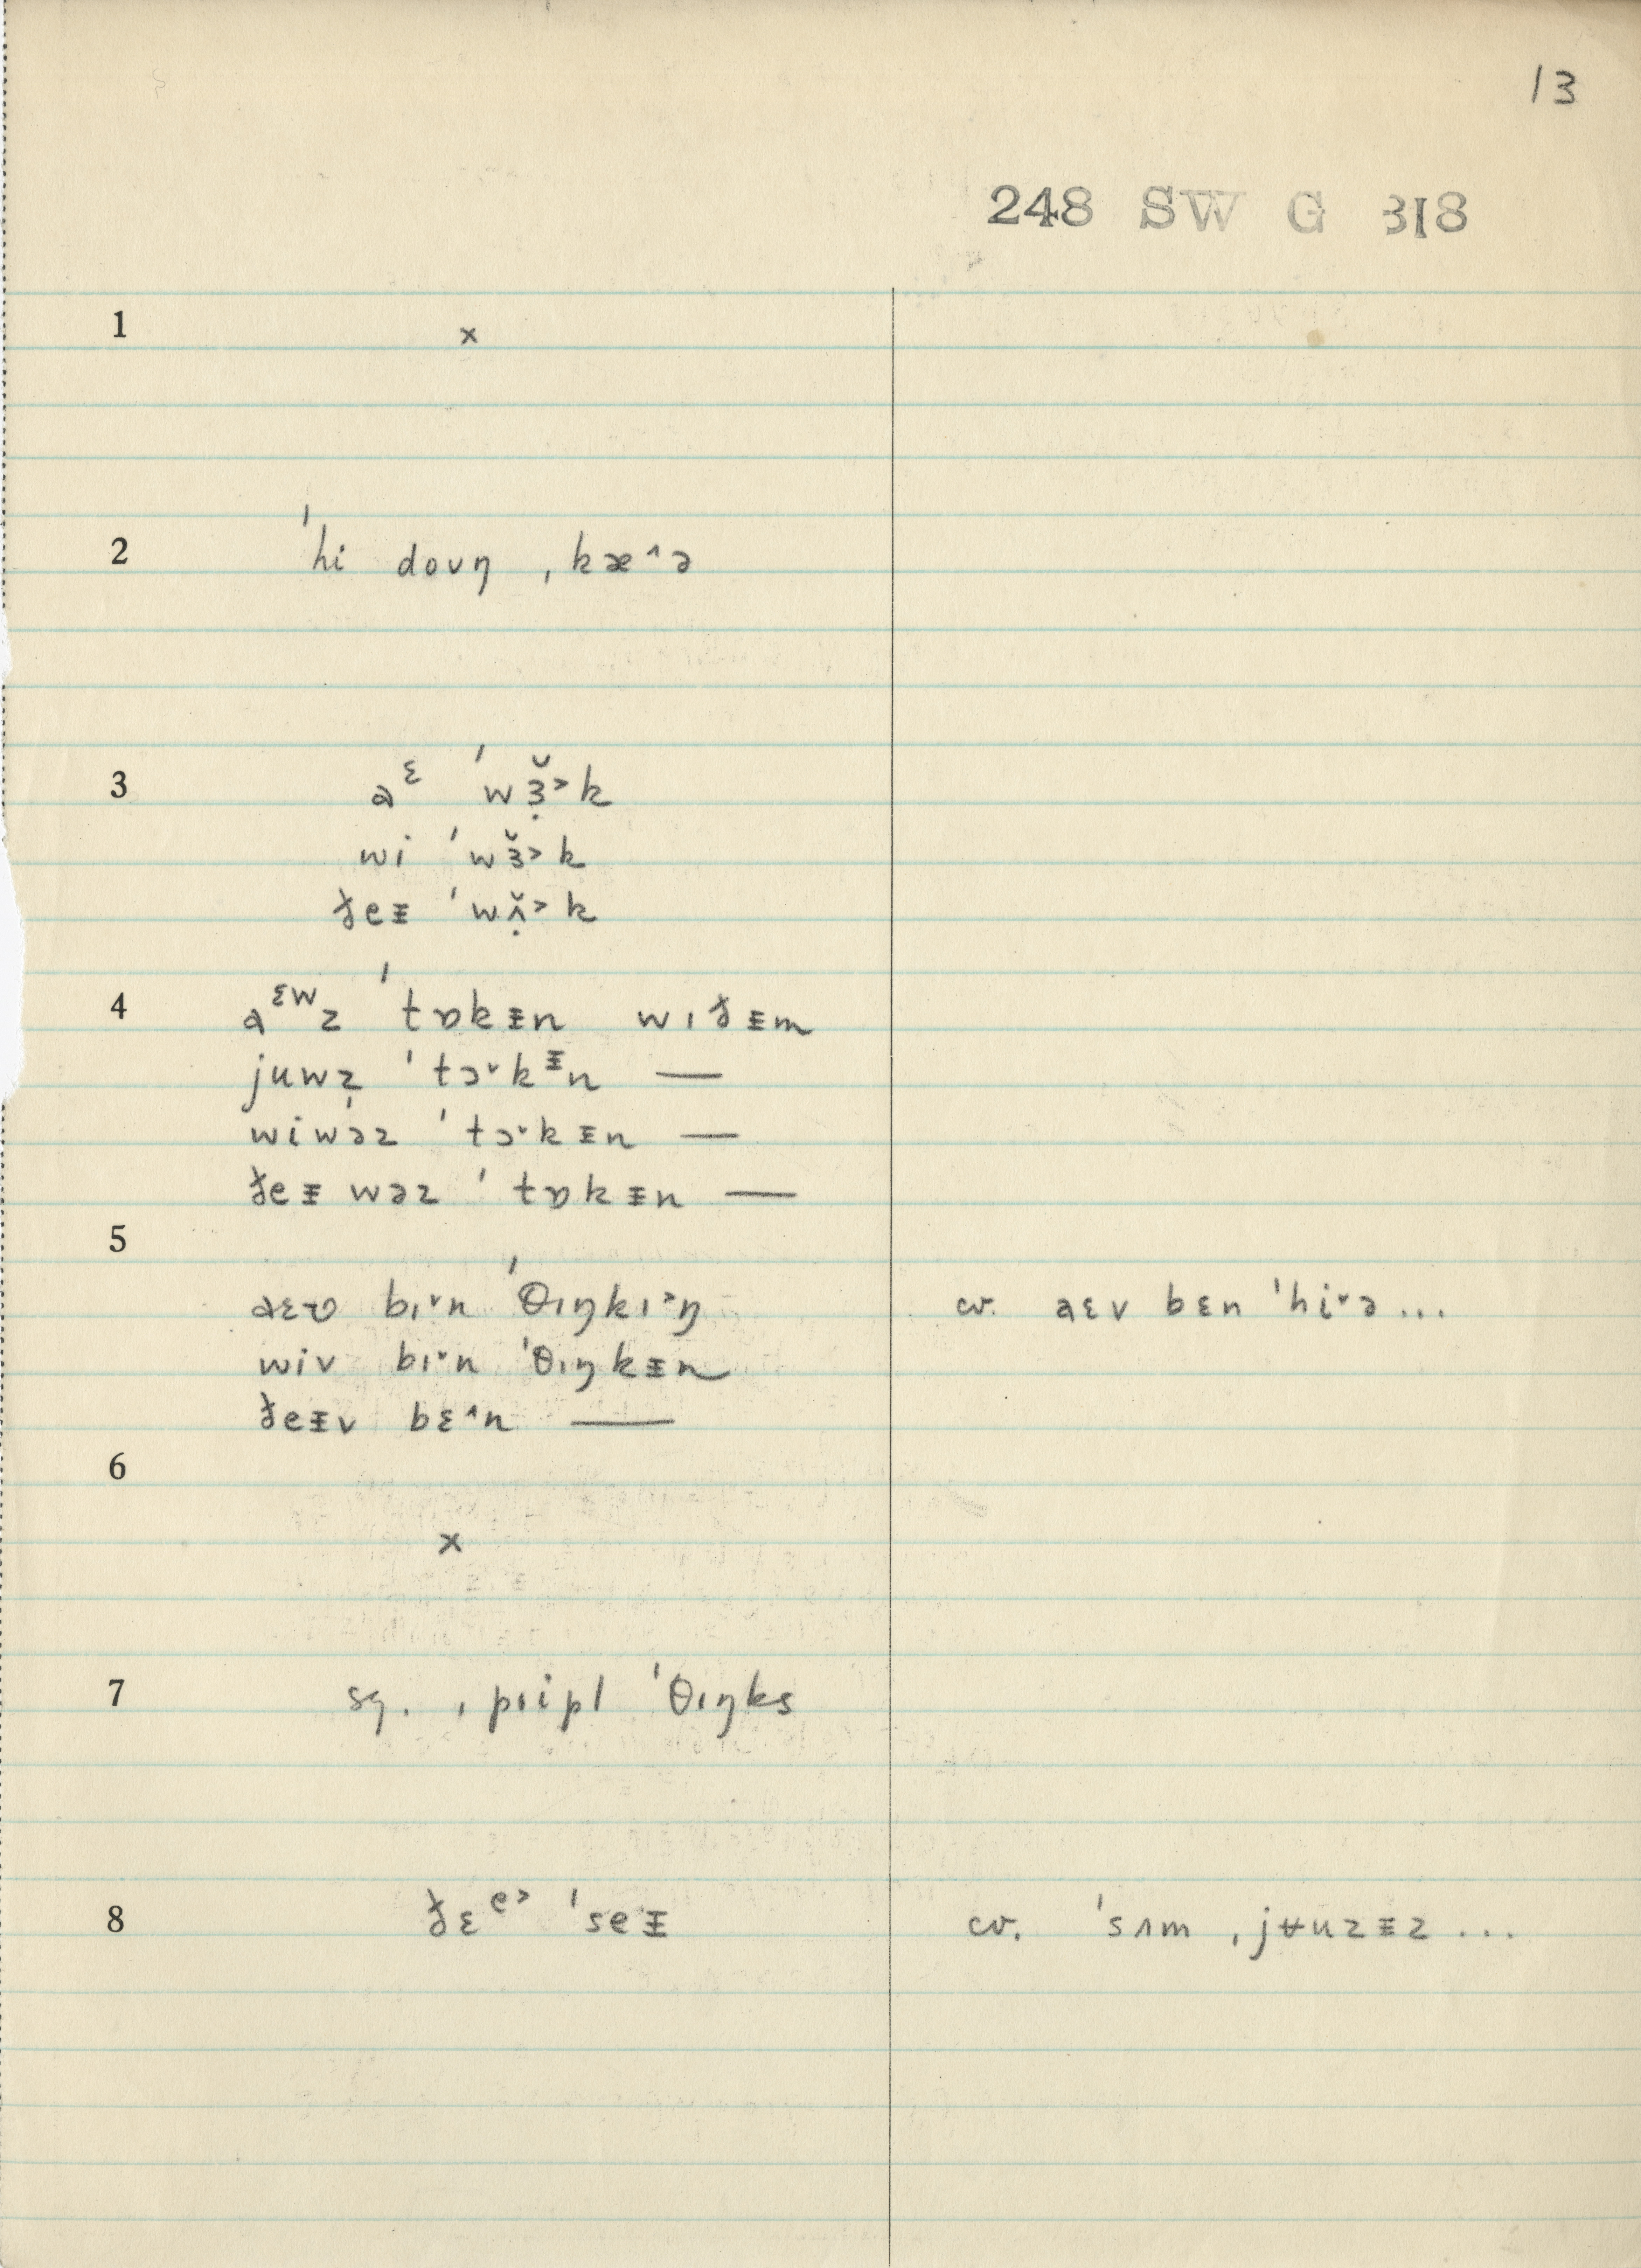 13
248 SW G 318
1 ×
2 ˈhi doʊŋ ˌkæ^ə
3 a^ɛ ˈwɜ̣̆˃k
wi ˈwɜ̆˃k
ðeᵻ ˈwʌ̣̆˃k
4 a^ɛw z ˈtɒkᵻn wɪðᵻm
juwẓ ˈtɔ˅k^ᵻn —
wiwəz ˈtɔ˅kᵻn —
ðeᵻ wəz ˈtɒkᵻn —
5
aɛʋ bɪ˅n ˈθɪŋkɪ˃ŋ cv. aɛv bɛn ˈhi˅ə...
wiv bɪ˅n ˈθɪŋkᵻn
ðeᵻv bɛ^n —
6
×
7 sq. ˌpɪipl ˈθɪŋks
8 ðɛ^e˃ ˈseᵻ cv. ˈsʌm ˌjʉuzᵻz ...